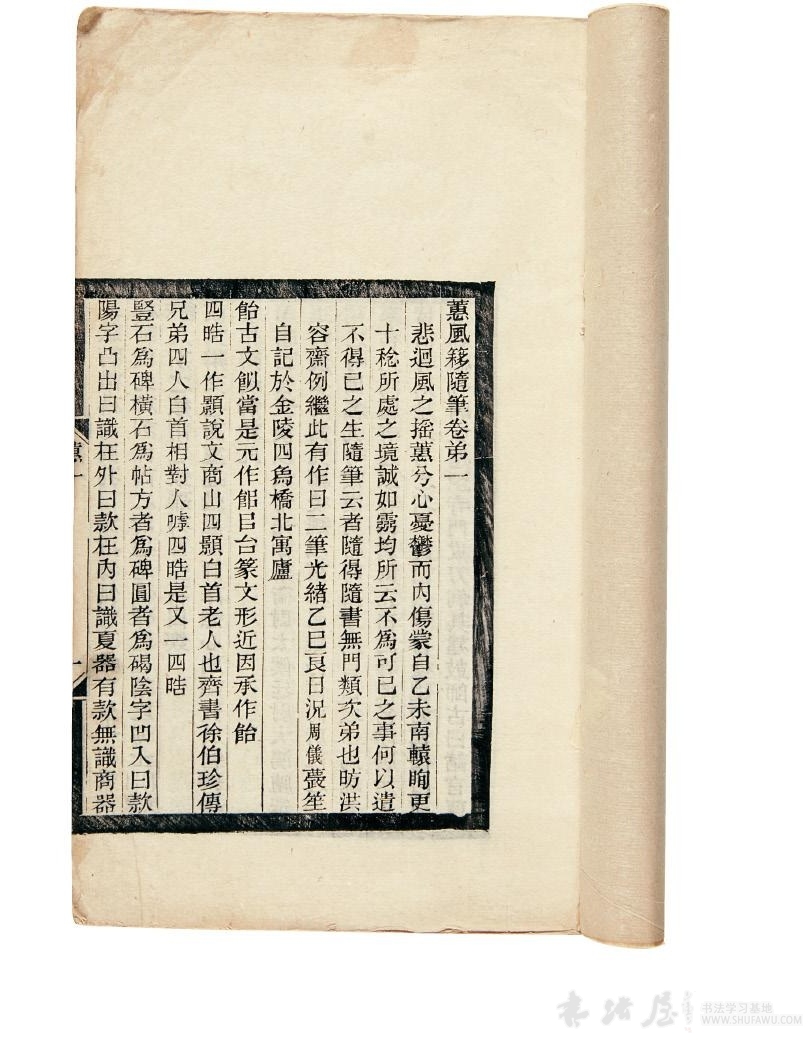 蕙風簃隨筆卷弟一
悲迴風之搖蕙兮心憂鬱而內傷蒙自乙未南轅晌更
十稔所處之境誠如靈均所云不爲可已之事何以遣
不得已之生隨筆云者隨得隨書無門類次弟也昉洪
容齋例繼此有作曰二筆光緒乙巳良日況周儀夔笙
自記於金陵四象橋北寓廬
飴古文飤當是元作䬮㠯台篆文形近因承作飴
四皓一作顥說文商山四顥白首老人也齊書徐伯珍傳
兄弟四人白首相對人嘑四皓是又一四皓
豎石爲碑橫石爲帖方者爲碑圓者爲碣陰字凹入曰款
陽字凸出曰識在外曰款在內曰識夏器有款無識商器
蕙一
一
书法屋
书法学习基地
WWW.SHUFAWU.COM